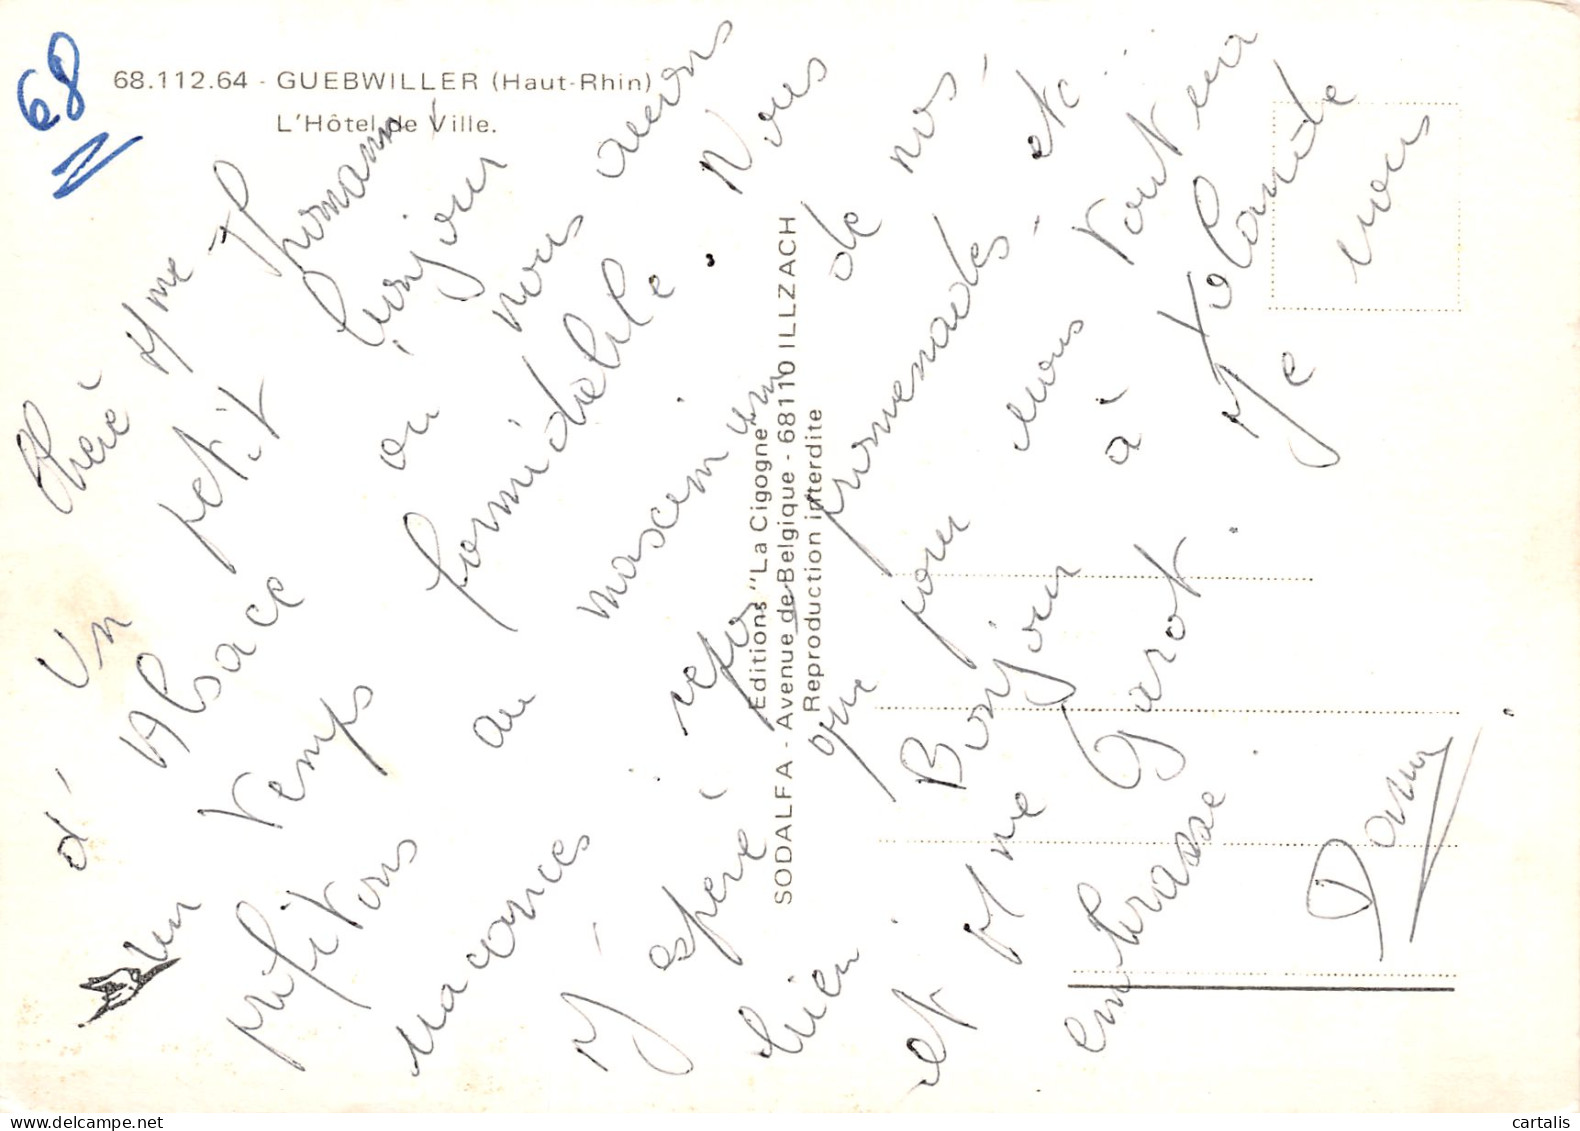 68
68.112.64 - GUEBWILLER (Haut-Rhin)
L'Hôtel de Ville.
Chère Mme Thomann
Un petit bonjour
d'Alsace où nous avons
un temps formidable. Nous
profitons au maximum de nos
vacances, repos, promenades, etc...
J'espère que pour vous tout va
bien. Bonjour à Yolande
et Mme Garot. Je vous
embrasse
Dany
Editions "La Cigogne"
SODALFA - Avenue de Belgique - 68110 ILLZACH
Reproduction interdite
cartalis